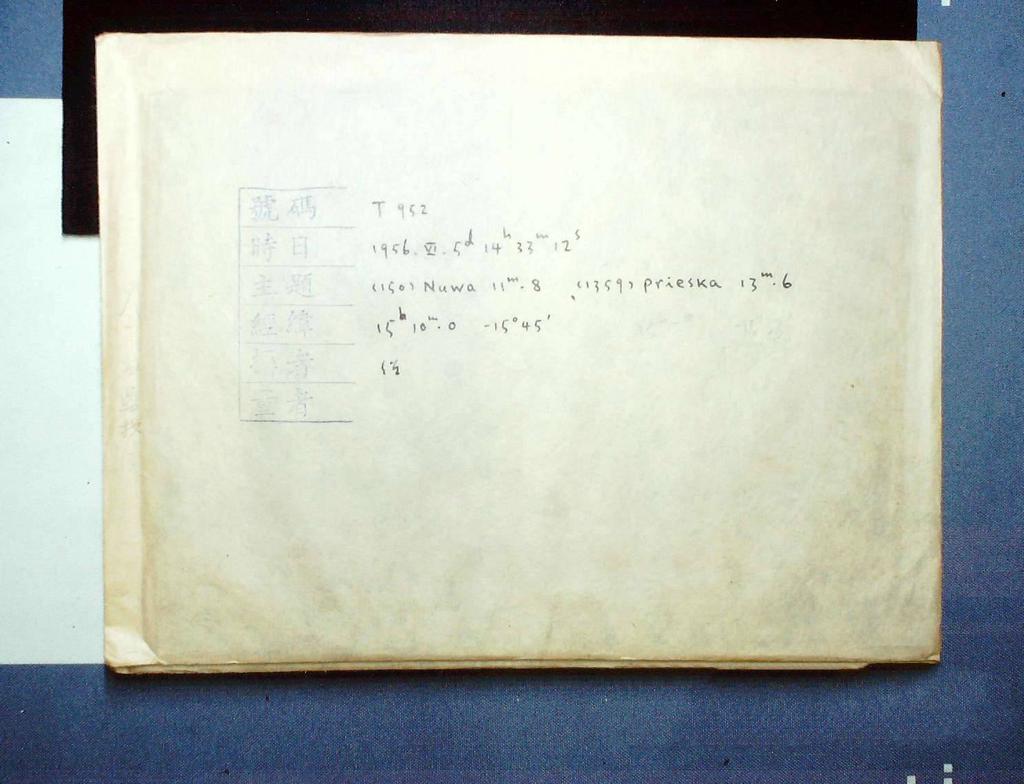 號碼 T 952
時日 1956. VI. 5ᵈ 14ʰ 33ᵐ 12ˢ
主題 (150) Nuwa 11ᵐ.8 (1359) Prieska 13ᵐ.6
經緯 15ʰ 10ᵐ.0 -15°45'
者
者